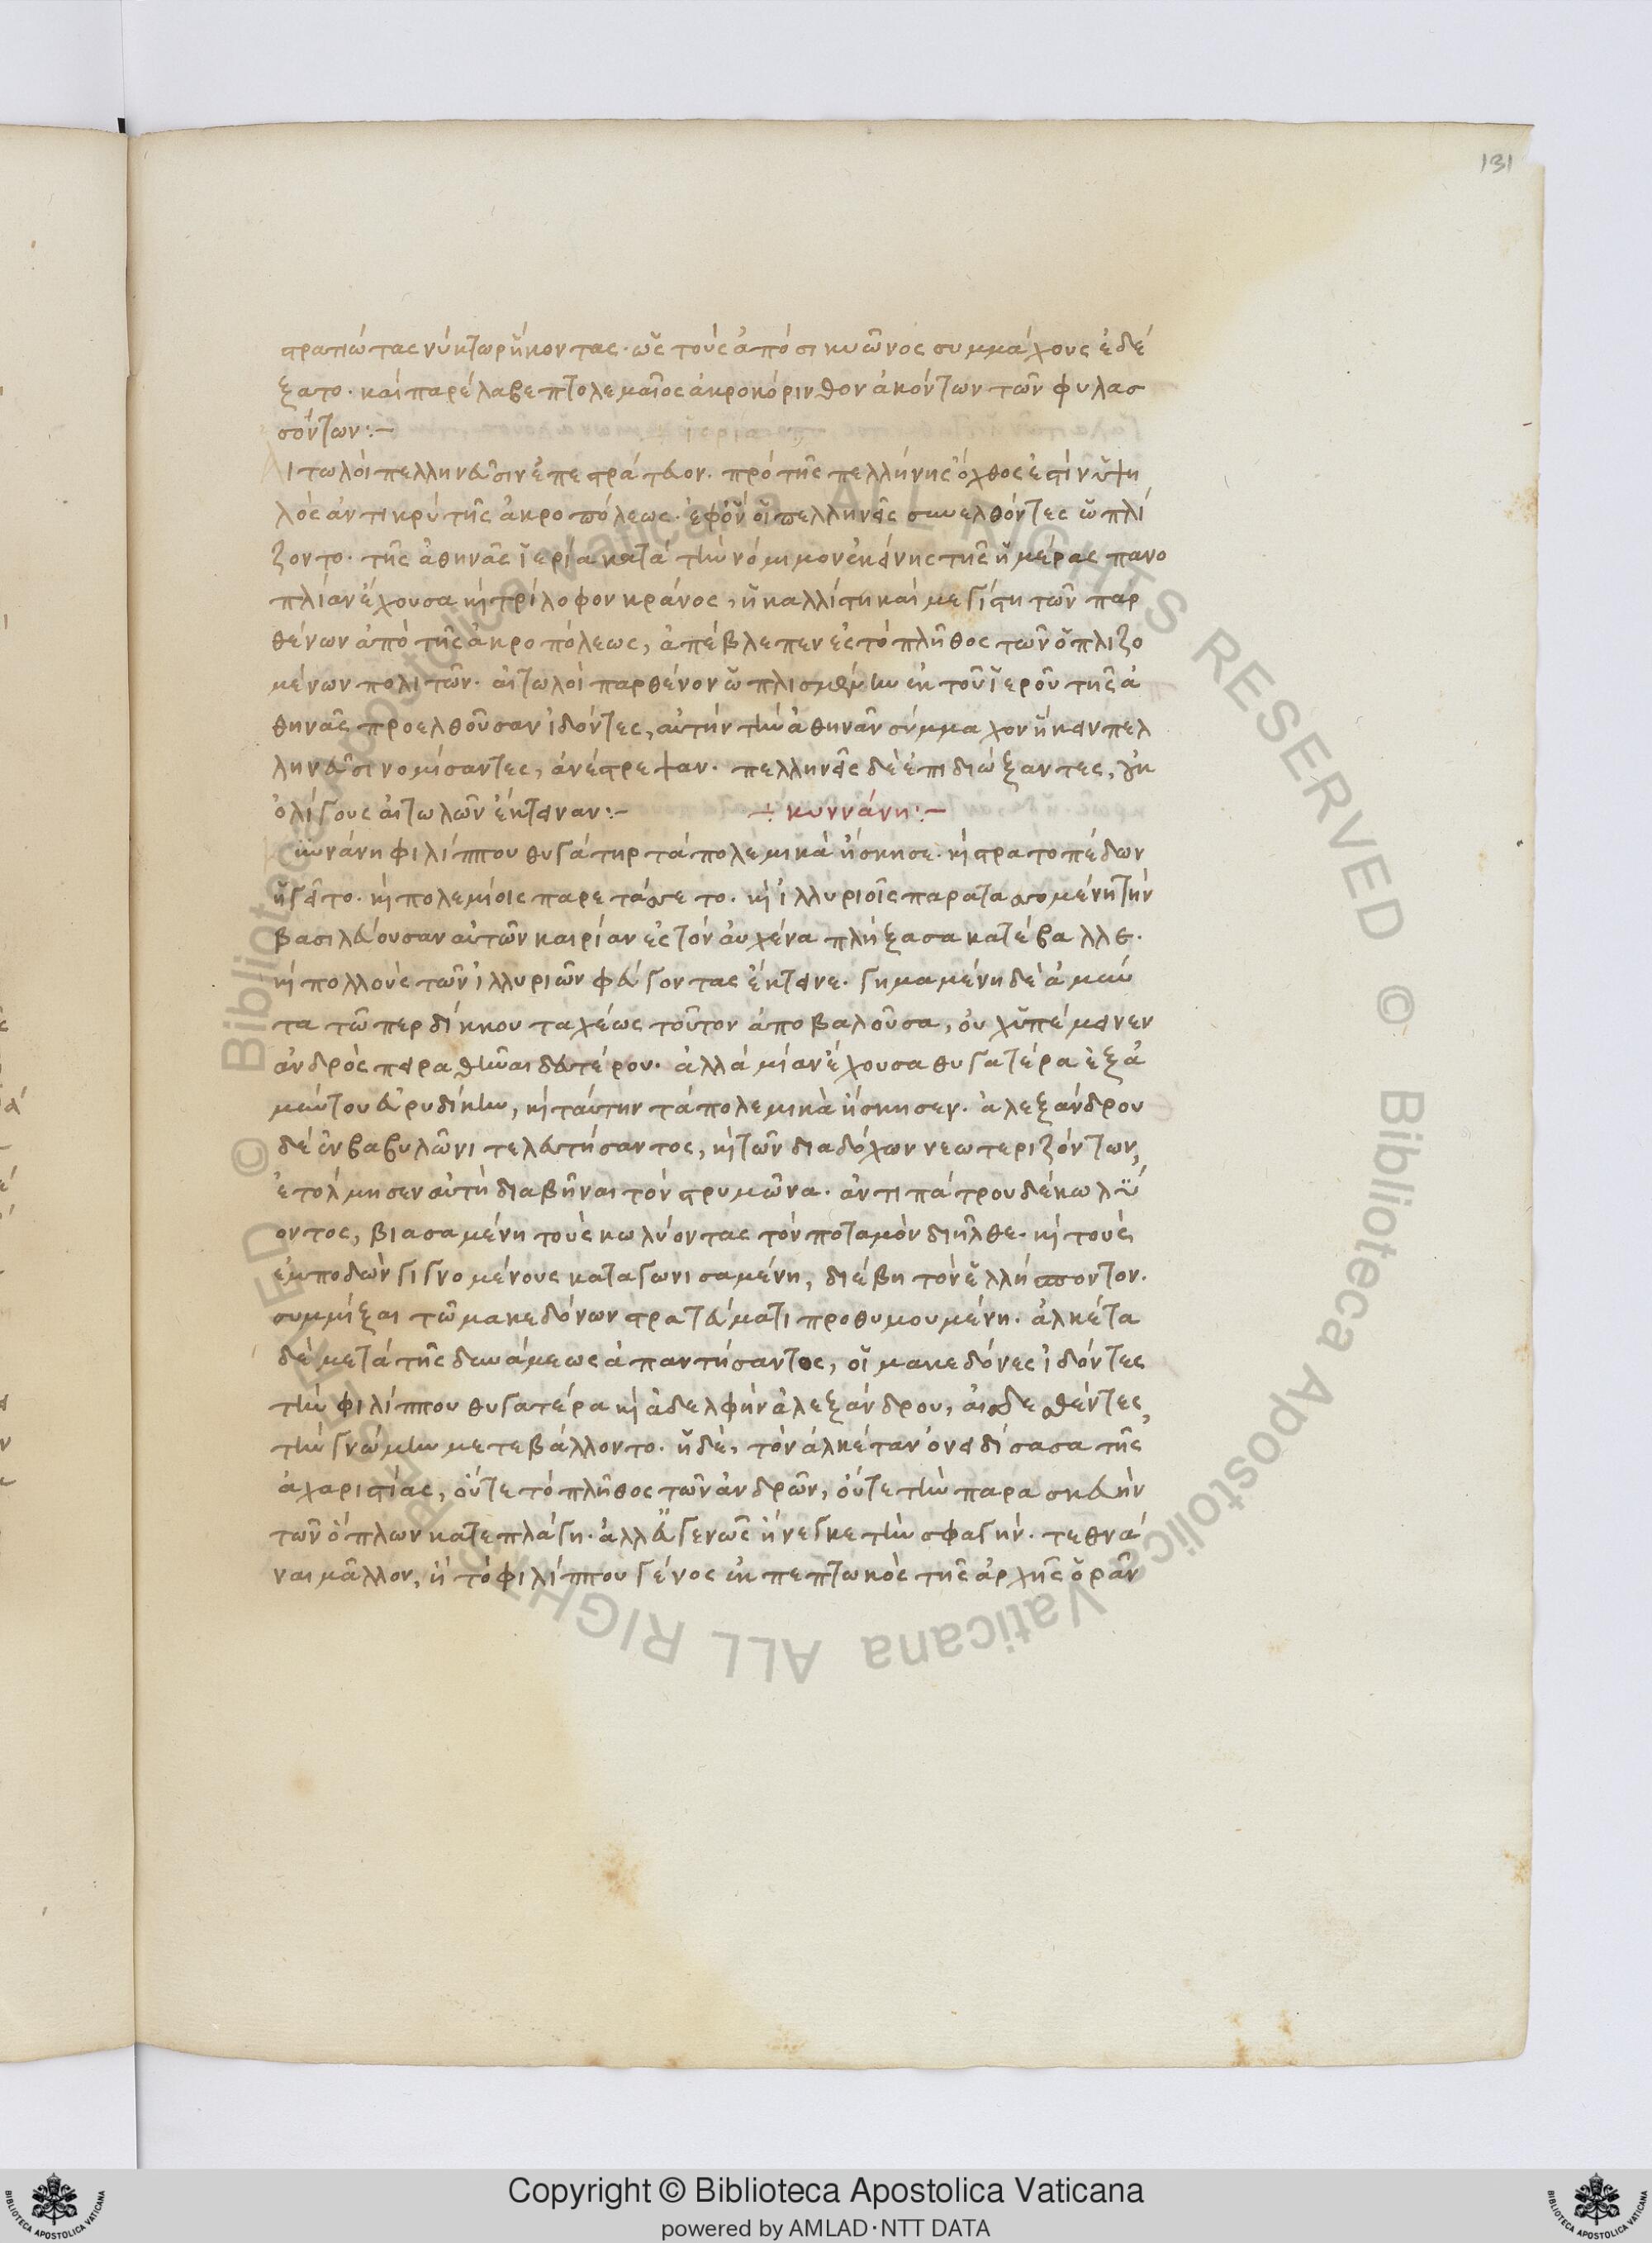 131
στρατιώτας νύκτωρ ἥκοντας· ὡς τοὺς ἀπὸ σικυῶνος συμμάχους ἐδέ
ξατο· καὶ παρέλαβε πτολεμαῖος ἀκροκόρινθον ἀκόντων τῶν φυλασ
σόντων:–
ιτωλοὶ πελληνεῦσιν ἐπεστράτευον· πρὸ τῆς πελλήνης ὄχθος ἐστὶν ὑψη
λὸς ἀντικρὺ τῆς ἀκροπόλεως· ἐφ' ὃν οἱ πελληνεῖς συνελθόντες ὡπλί
ζοντο· τῆς ἀθηνᾶς ἱερία κατὰ τὴν νόμιμον ἐκείνης τῆς ἡμέρας πανο
πλίαν ἔχουσα καὶ τρίλοφον κράνος, ἡ καλλίστη καὶ μεγίστη τῶν παρ
θένων ἀπὸ τῆς ἀκροπόλεως, ἀπέβλεπεν ἐς τὸ πλῆθος τῶν ὁπλιζο
μένων πολιτῶν· αἰτωλοὶ παρθένον ὡπλισμένην ἐκ τοῦ ἱεροῦ τῆς ἀ
θηνᾶς προελθοῦσαν ἰδόντες, αὐτὴν τὴν ἀθηνᾶν σύμμαχον ἥκειν πελ
ληνεῦσι νομίσαντες, ἀνέστρεψαν· πελληνεῖς δὲ ἐπιδιώξαντες, οὐκ
ὀλίγους αἰτωλῶν ἔκτειναν:– ÷ κυννάνη:–
κυνάνη φιλίππου θυγάτηρ τὰ πολεμικὰ ἤσκησε· καὶ στρατοπέδων
ἡγεῖτο· καὶ πολεμίοις παρετάσσετο· καὶ ἰλλυριοῖς παρατασσομένη τὴν
βασιλεύουσαν αὐτῶν καιρίαν ἐς τὸν αὐχένα πλήξασα κατέβαλλε·
καὶ πολλοὺς τῶν ἰλλυριῶν φεύγοντας ἔκτεινε· γημαμένη δὲ ἀμύν
τα τῷ περδίκκου ταχέως τοῦτον ἀποβαλοῦσα, οὐχ ὑπέμεινεν
ἀνδρὸς πειραθῆναι δευτέρου· ἀλλὰ μίαν ἔχουσα θυγατέρα ἐξ ἀ
μύντου εὐρυδίκην, καὶ ταύτην τὰ πολεμικὰ ἤσκησεν· ἀλεξάνδρου
δὲ ἐν βαβυλῶνι τελευτήσαντος, καὶ τῶν διαδόχων νεωτεριζόντων,
ἐτόλμησεν αὐτὴ διαβῆναι τὸν στρυμῶνα· ἀντιπάτρου δὲ κωλύ
οντος, βιασαμένη τοὺς κωλύοντας τὸν ποταμὸν διῆλθε· καὶ τοὺς
ἐμποδὼν γιγνομένους καταγωνισαμένη, διέβη τὸν ἑλλήσποντον·
συμμίξαι τῷ μακεδόνων στρατεύματι προθυμουμένη· ἀλκέτα
δὲ μετὰ τῆς δυνάμεως ἀπαντήσαντος, οἱ μακεδόνες ἰδόντες
τὴν φιλίππου θυγατέρα καὶ ἀδελφὴν ἀλεξάνδρου, αἰδεσθέντες,
τὴν γνώμην μετεβάλλοντο· ἡ δὲ, τὸν ἀλκέταν ὀνειδίσασα τῆς
ἀχαριστίας, οὔτε τὸ πλῆθος τῶν ἀνδρῶν, οὔτε τὴν παρασκευὴν
τῶν ὅπλων κατεπλάγη· ἀλλ' εὐγενῶς ἤνεγκε τὴν σφαγήν· τεθνά
ναι μᾶλλον, ἢ τὸ φιλίππου γένος ἐκπεπτωκὸς τῆς ἀρχῆς ὁρᾶν
Copyright © Biblioteca Apostolica Vaticana
powered by AMLAD·NTT DATA